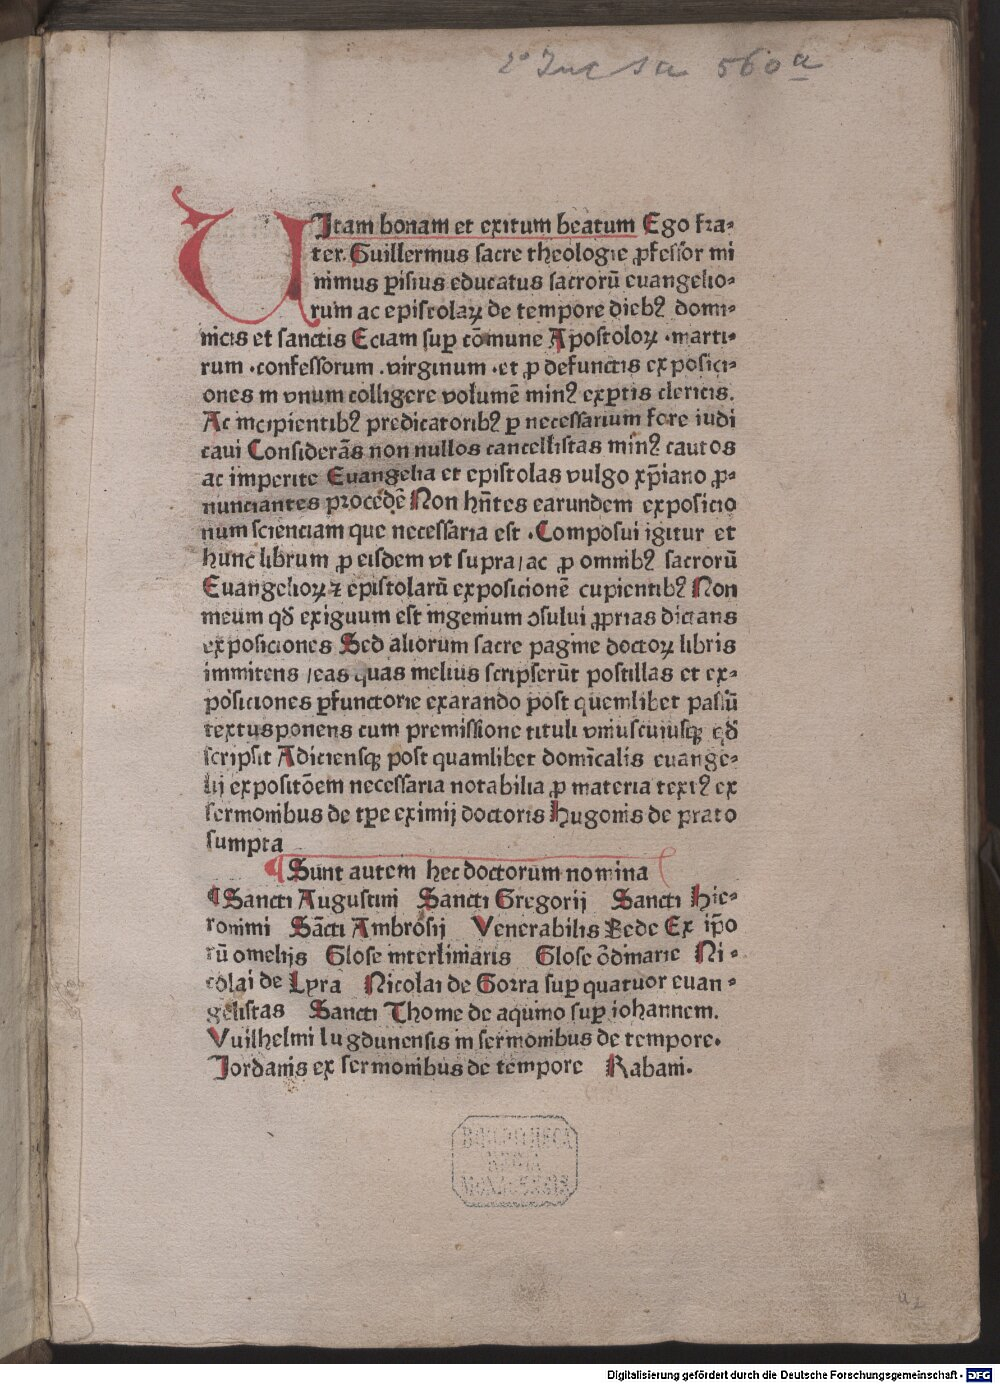 2° Inc s a 560 a
UItam bonam et exitum beatum Ego fra-
ter. Guillermus sacre theologie ꝓfessor mi
nimus ꝑisius educatus sacrorū euangelio-
rum ac epistolaꝝ de tempore dieb⁹ domi-
nicis et sanctis Eciam suꝑ cōmune Apostoloꝝ .marti-
rum .confessorum .virginum .et ꝓ defunctis exposici-
ones in vnum colligere volumē min⁹ exꝑtis clericis.
Ac incipientib⁹ predicatorib⁹ ꝑ necessarium fore iudi
caui Considerās non nullos cancellistas min⁹ cautos
ac imperite Euangelia et epistolas vulgo xp̄iano ꝓ-
nunciantes procedē Non hn̄tes earundem exposicio
num scienciam que necessaria est .Composui igitur et
hunc librum ꝓ eisdem vt supra/ac ꝓ omnib⁹ sacrorū
Euangelioꝝ ⁊ epistolarū exposicionē cupientib⁹ Non
meum qd̄ exiguum est ingenium ↄsului ꝓprias dictans
exposiciones Sed aliorum sacre pagine doctoꝝ libris
immitens /eas quas melius scripserūt postillas et ex-
posiciones ꝑfunctorie exarando post quemlibet passū
textus ponens cum premissione tituli vniuscuiusqꝫ qd̄
scripsit Adiciensqꝫ post quamlibet domīcalis euange-
lij expositōem necessaria notabilia ꝓ materia text⁹ ex
sermonibus de tꝑe eximij doctoris Hugonis de prato
sumpta
¶ Sunt autem hec doctorum nomina
¶ Sancti Augustini Sancti Gregorij Sancti Hie-
ronimi Sācti Ambrosij Venerabilis Bede Ex ip̄o
rū omelijs Glose interliniaris Glose ōdinarie Ni-
colai de Lyra Nicolai de Gorra suꝑ quatuor euan-
gelistas Sancti Thome de aquino suꝑ iohannem.
Vuilhelmi lugdunensis in sermonibus de tempore.
Jordanis ex sermonibus de tempore Rabani.
BIBLIOTHECA
REGIA
MONACENSIS
a 2
Digitalisierung gefördert durch die Deutsche Forschungsgemeinschaft - DFG